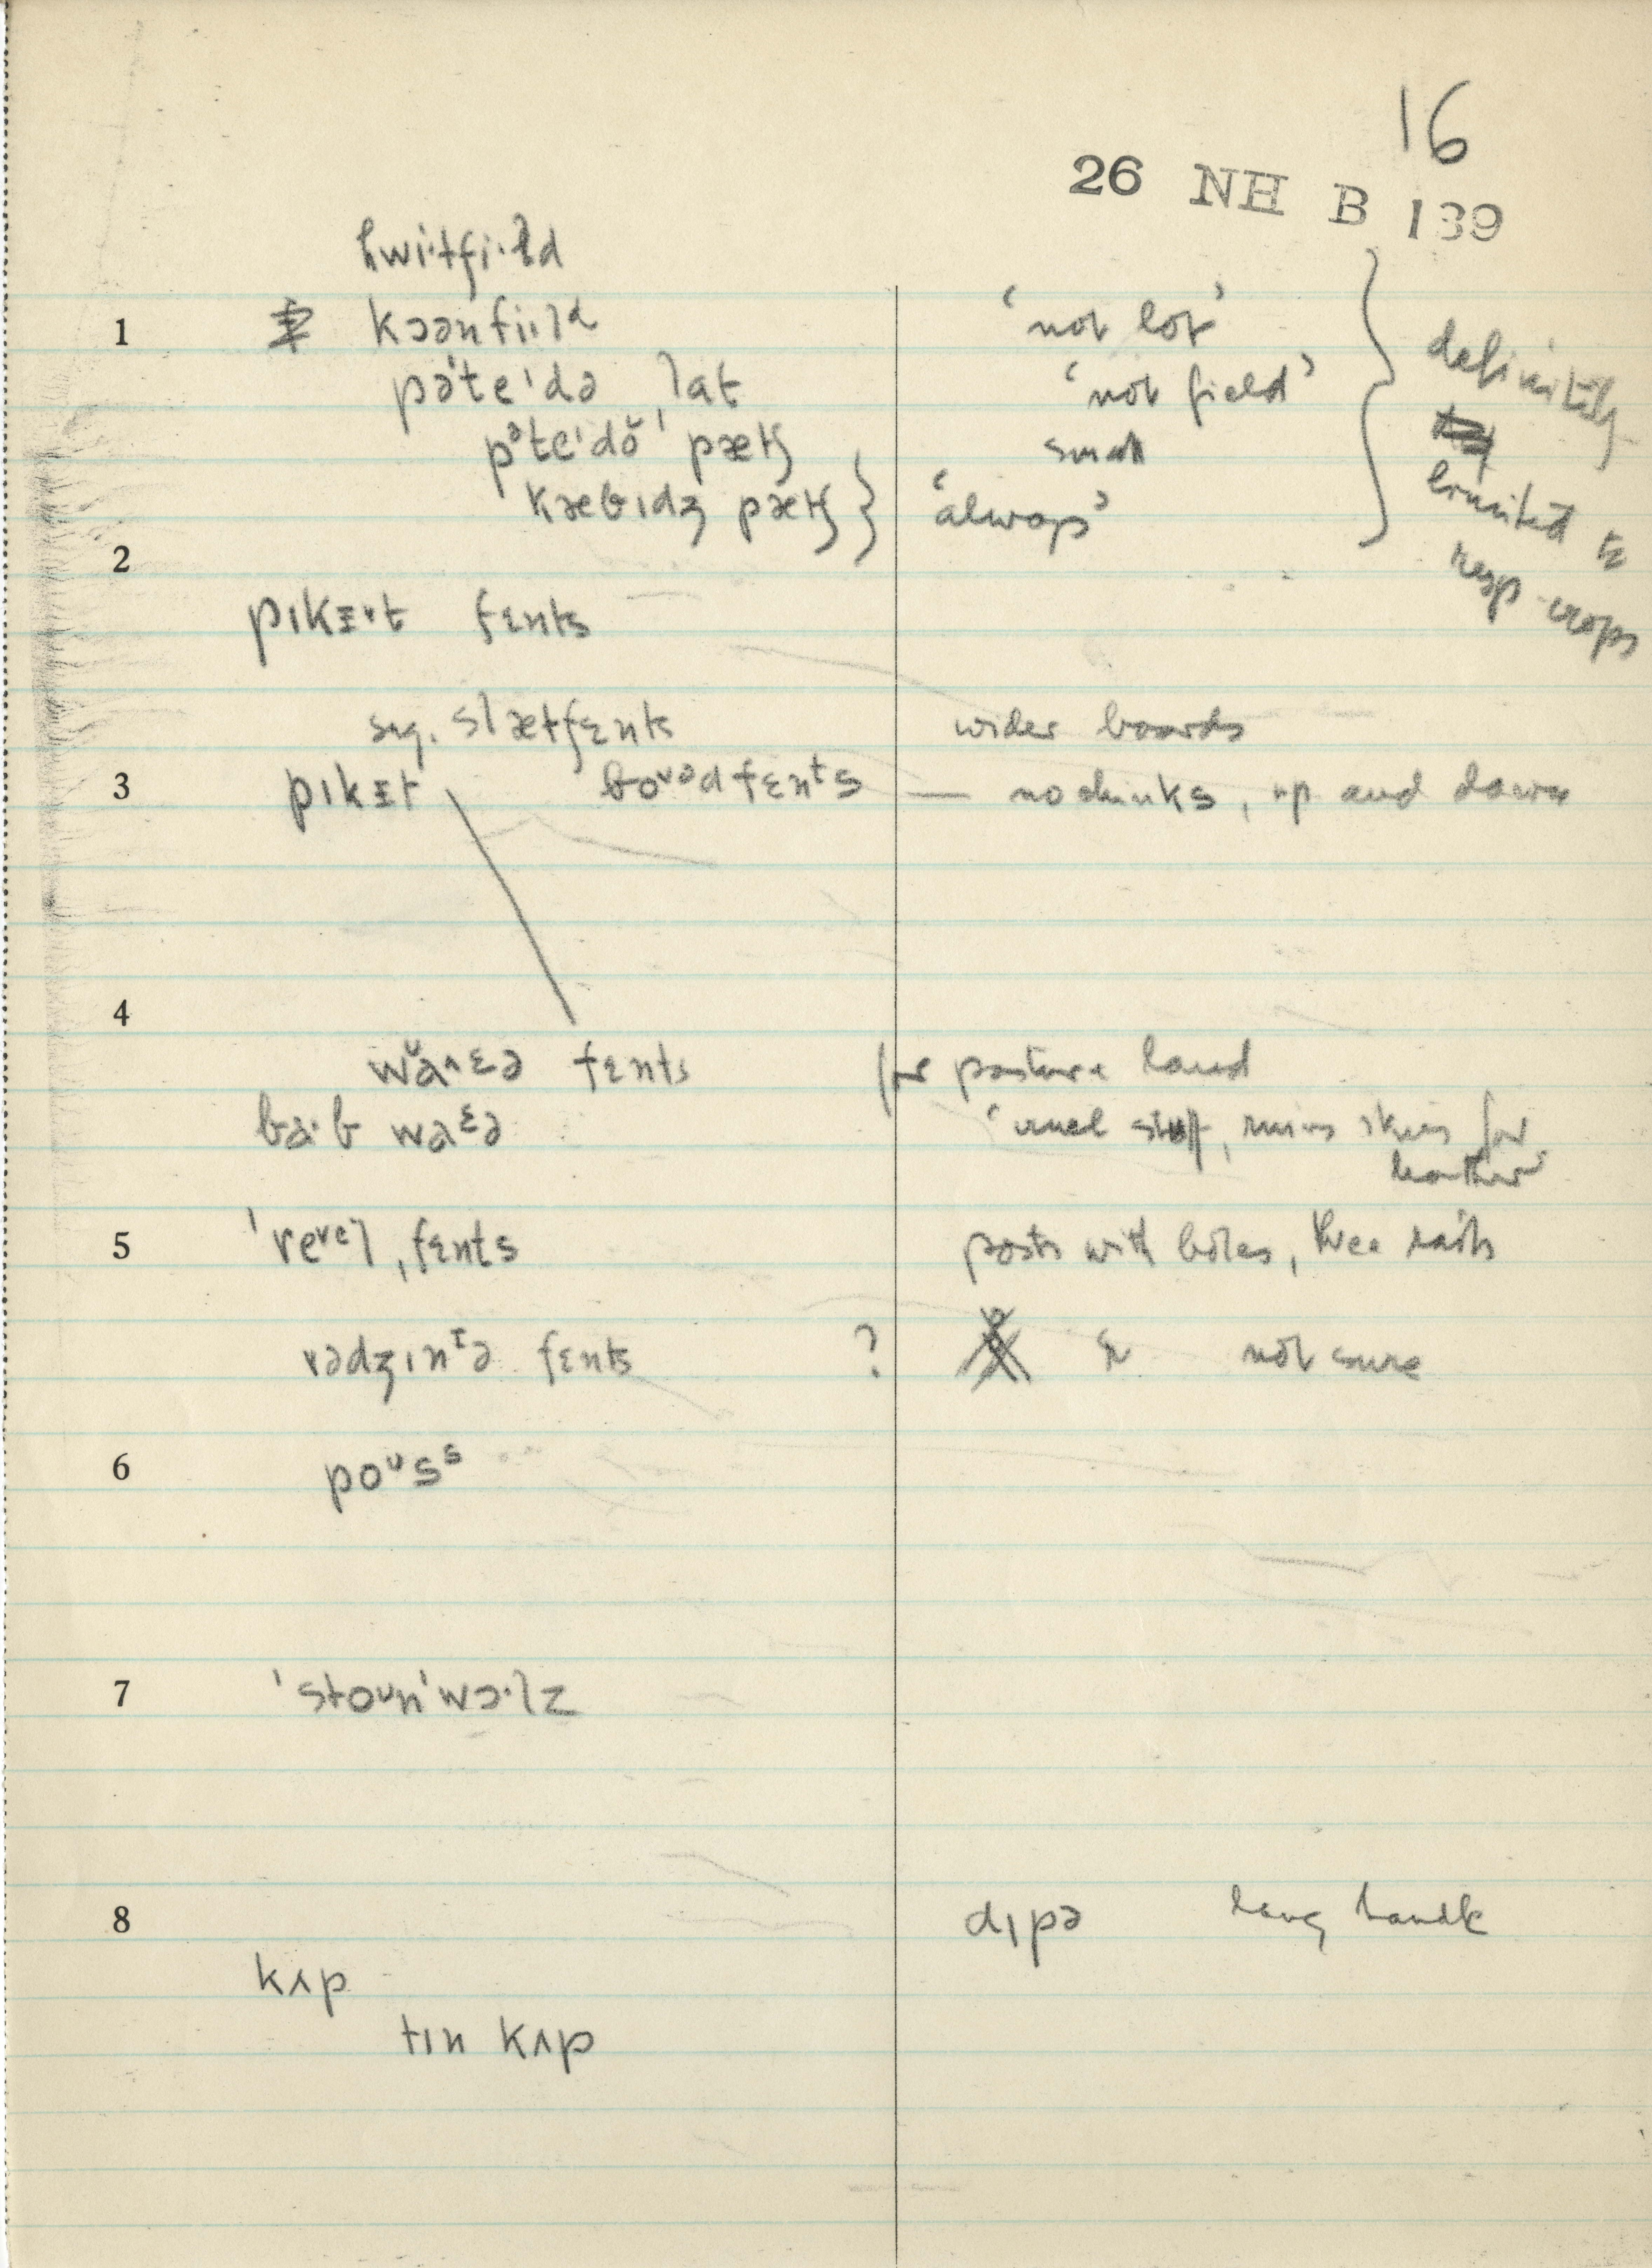 16
26 NH B 139
hwi·tfi·ld
1 kɔənfi·ld 'not lot'
pəˈteˈdə lat 'not field'
pᵊteˈdə̆ˈ pætʃ small
kæbɪdʒ pætʃ } 'always'
} definitely limited to resp crops
2
pɪkɪt fɛnts
sug. slætfɛnts wider boards
3 pɪkɪt boᶷədfɛnᵗs — no chinks, up and down
4
wăɪə fɛnts for pasture land
ba·b waᵋə 'cruel stuff, ruins skins for leather'
5 ˈreᵛᵉl ˌfɛnts posts with holes, three rails
vədʒɪnᴵə fɛnts ? not sure
6 poᶷsˢ
7 ˈstoᶷnˈwɔ·lz
8 dɪpə long handle
kʌp
tɪn kʌp